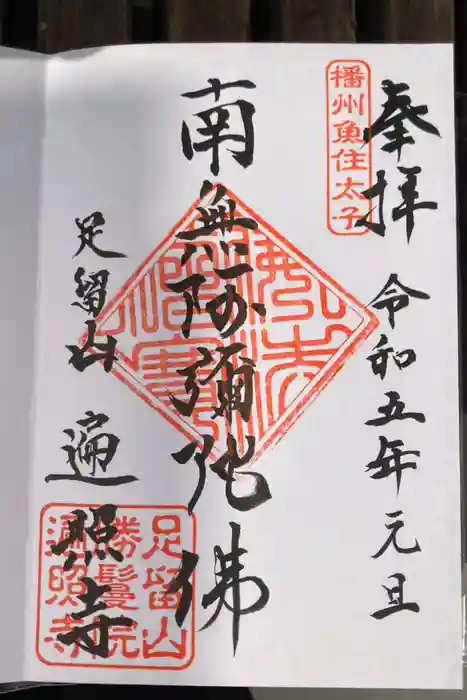 奉拝 令和五年元旦
播州魚住太子
南無阿彌陀佛
足留山 遍照寺
足留山
勝鬘院
遍照寺